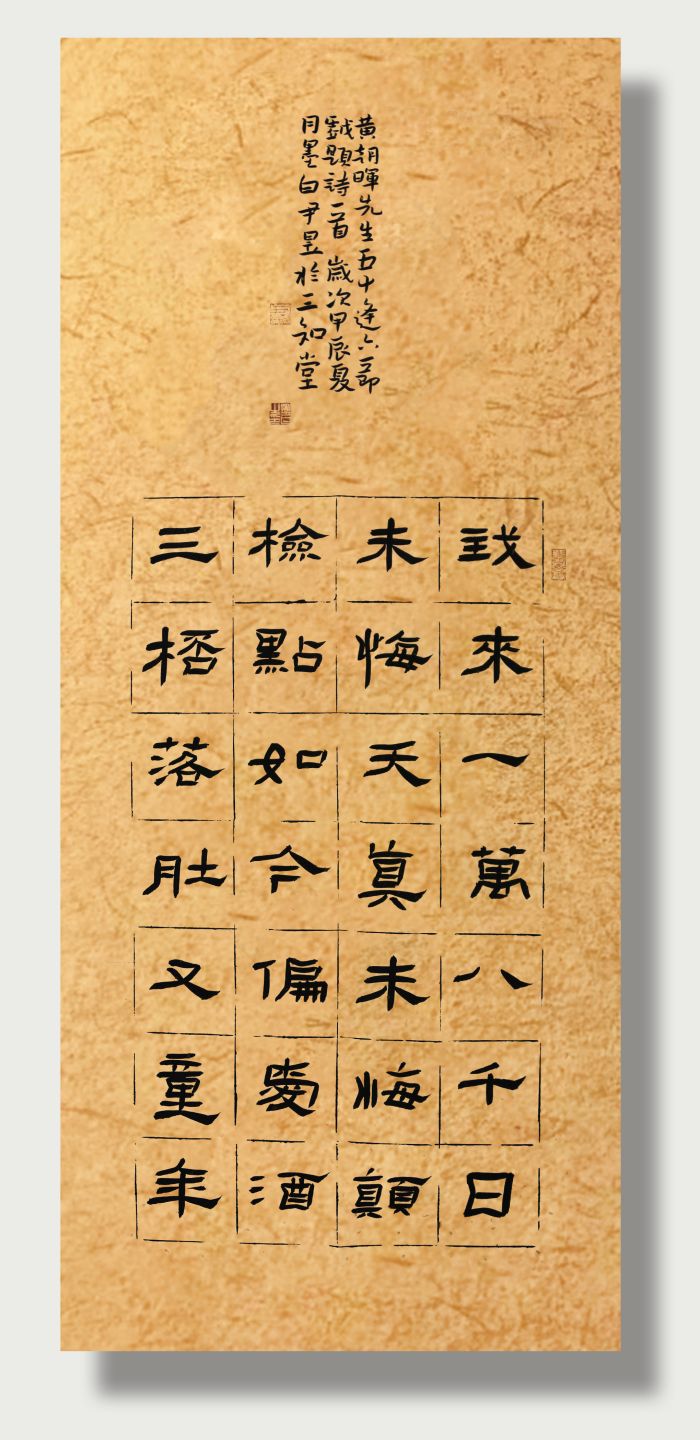 我來一萬八千日
未悔天真未悔顛
檢點如今偏愛酒
三桮落肚又童年
黃朝暉先生五十逢六節
戲題詩一首 歲次甲辰夏
月墨白尹昱於三知堂